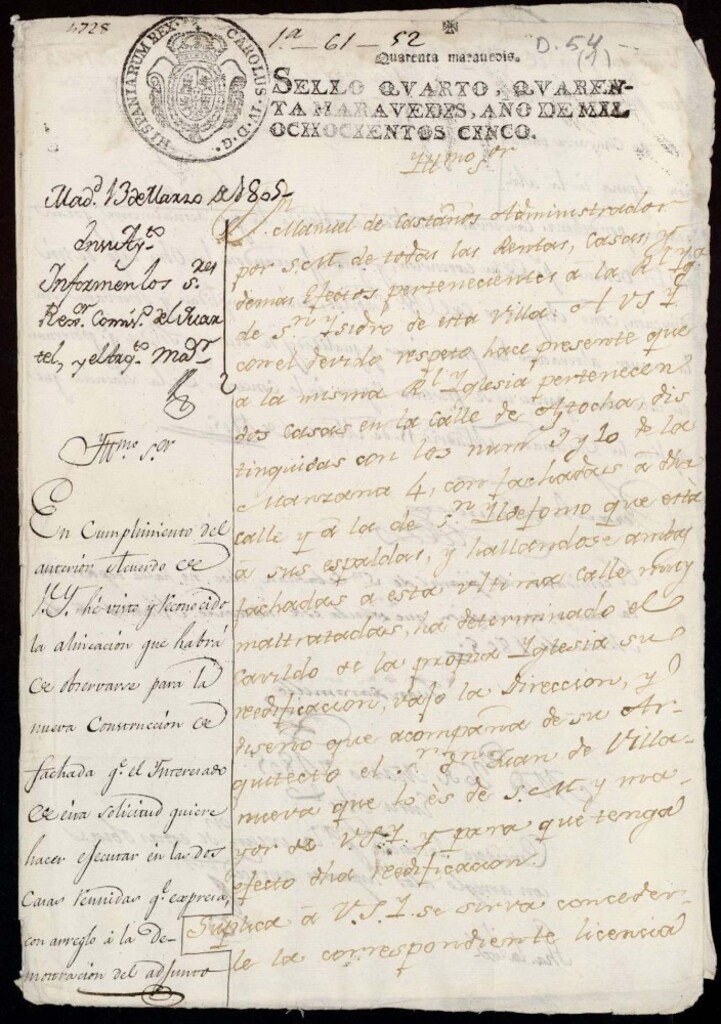 4728
1.ª - 61 - 52
D. 54
(1)
HISPANIARUM REX.
CAROLUS IV. D. G.
Quarenta marauedis.
SELLO QVARTO, QVAREN-
TA MARAVEDIS, AÑO DE MIL
OCHOCIENTOS CINCO.
Yllmo Sor
Mad.d 13 de Marzo de 1805
En su Ay.to
Informen los s.res
Rex.or Comis.o del Quar
tel, y el Arq.to ma.or
Yllmo S.or
En Cumplimiento del
anterior Acuerdo de
V.Y. hé visto y reconocido
la alineación que habrá
de observarse para la
nueva Construcción de
fachada q.e el Interesado
de esta solicitud quiere
hacer ejecutar en las dos
Casas reunidas q.e expresa,
con arreglo á la De-
mostración del adjunto
D.n Manuel de Castaños Administrador
por S. M. de todas las Rentas, Casas, y
demas Efectos pertenecientes a la R.l Yg.a
de S.n Ysidro de esta Villa: A V S Y.
con el devido respeto hace presente que
a la misma R.l Yglesia pertenecen
dos Casas en la Calle de Atocha, dis
tinguidas con los num.s 9 y 10 de la
Manzana 4, con fachadas à dha
calle y à la de S.n Yldefonso que està
a sus espaldas, y hallandose ambas
fachadas a esta ultima calle muy
maltratadas, ha determinado el
Cavildo de la propia Yglesia su
reedificacion, vajo la Direccion, y
diseño que acompaña de su Ar-
quitecto el S.r D.n Juan de Villa-
nueva que lo ès de S. M. y ma-
yor de V S Y. y para que tenga
efecto dha reedificacion.
Suplica à V. S. Y. se sirva conceder-
le la correspondiente licencia